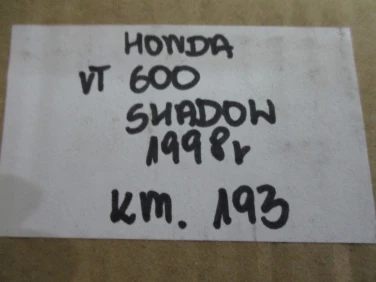 HONDA
VT 600
SHADOW
1998r
KM. 193